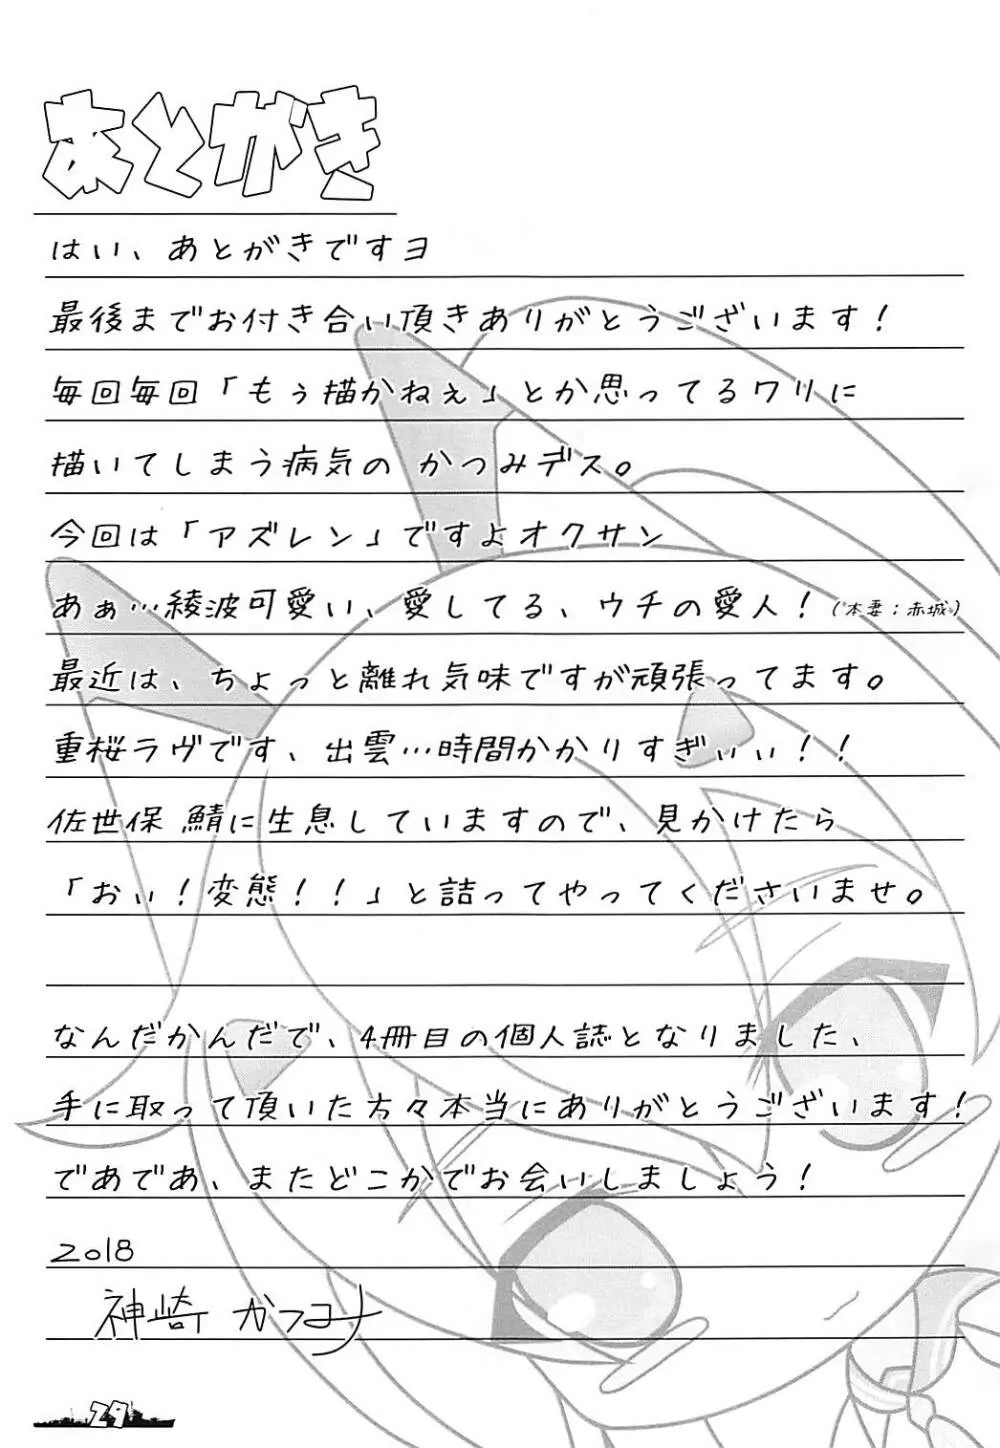 あとがき
はい、あとがきですヨ
最後までお付き合い頂きありがとうございます！
毎回毎回「もぅ描かねぇ」とか思ってるワリに
描いてしまう病気の かつみデス。
今回は「アズレン」ですよオクサン
あぁ…綾波可愛い、愛してる、ウチの愛人！（本妻：赤城）
最近は、ちょっと離れ気味ですが頑張ってます。
重桜ラヴです、出雲…時間かかりすぎぃぃ！！
佐世保 鯖に生息していますので、見かけたら
「おぃ！変態！！」と詰ってやってくださいませ。
なんだかんだで、4冊目の個人誌となりました、
手に取って頂いた方々本当にありがとうございます！
であであ、またどこかでお会いしましょう！
2018
神崎 かつ
29